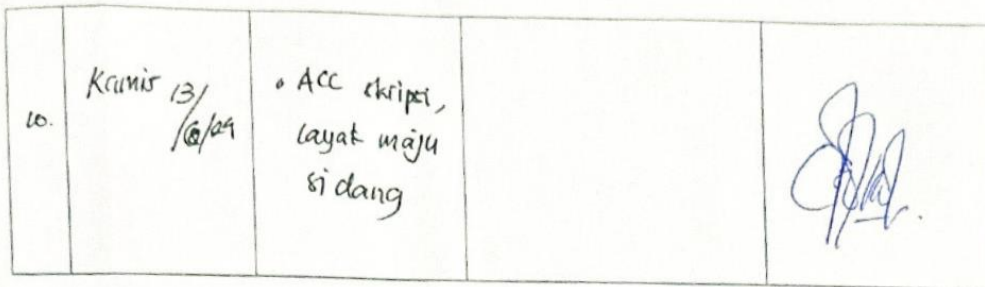 10.
Kamis 13/
/6/24
• ACC skripsi,
layak maju
sidang